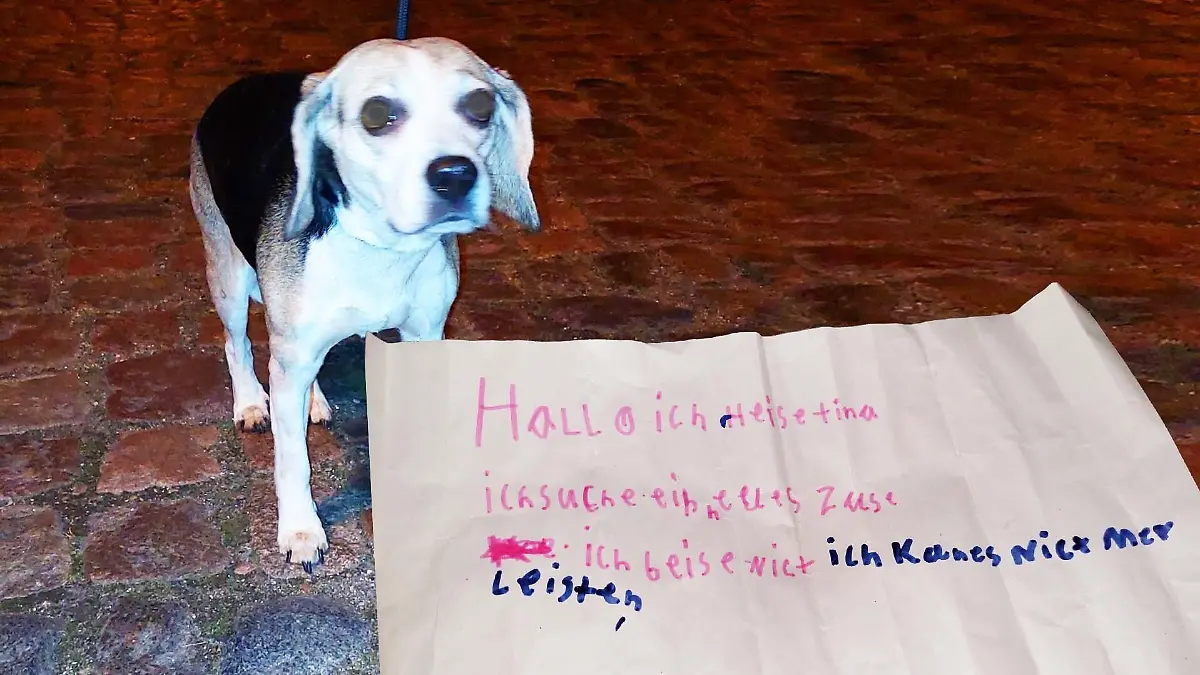 HALLO ich Heise tina
ich suche ein neues Zuse
ich beise nict ich Kanes Nict Mer
Leisten,